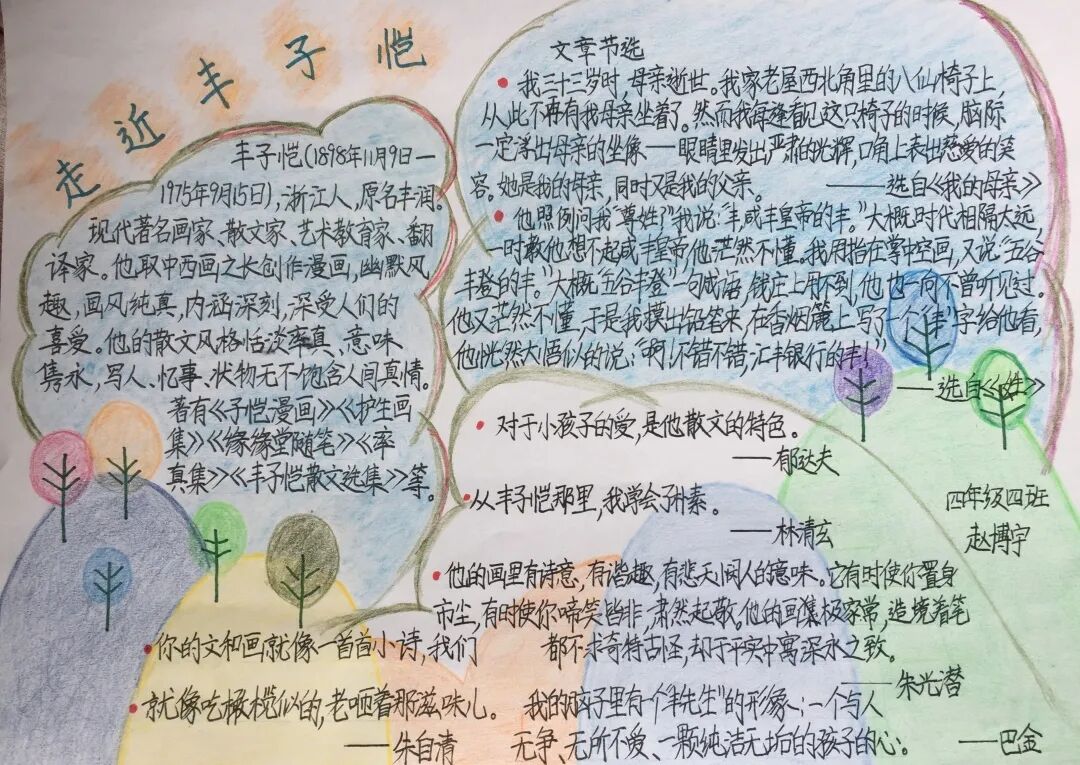 走近丰子恺
丰子恺(1898年11月9日—
1975年9月15日),浙江人,原名丰润。
现代著名画家、散文家、艺术教育家、翻
译家。他取中西画之长创作漫画,幽默风
趣,画风纯真,内涵深刻,深受人们的
喜爱。他的散文风格恬淡率真、意味
隽永,写人、忆事、状物无不饱含人间真情。
著有《子恺漫画》《护生画
集》《缘缘堂随笔》《率
真集》《丰子恺散文选集》等。
文章节选
•我三十三岁时,母亲逝世。我家老屋西北角里的八仙椅子上,
从此不再有我母亲坐着了。然而我每逢看见这只椅子的时候,脑际
一定浮出母亲的坐像——眼睛里发出严肃的光辉,口角上表出慈爱的笑
容。她是我的母亲,同时又是我的父亲。 ——选自《我的母亲》
•他照例问我“尊姓?”我说“丰咸丰皇帝的丰。”大概时代相隔太远,
一时教他想不起咸丰皇帝,他茫然不懂。我用指在掌中空画,又说“五谷
丰登的丰。”大概“五谷丰登”一句成语,钱庄上用不到,他也一向不曾听见过。
他又茫然不懂,于是我摸出铅笔来,在香烟篾上写了一个“丰”字给他看,
他恍然大悟似的说:“啊!不错不错,汇丰银行的丰!”
——选自《姓》
•对于小孩子的爱,是他散文的特色。
——郁达夫
•从丰子恺那里,我学会了朴素。
——林清玄
四年级四班
赵博宇
•他的画里有诗意,有谐趣,有悲天悯人的意味。它有时使你置身
市尘,有时使你啼笑皆非,肃然起敬。他的画集极家常,造境着笔
都不求奇特古怪,却于平实中寓深永之致。
——朱光潜
•你的文和画就像一首首小诗,我们
•就像吃橄榄似的,老咂着那滋味儿。
——朱自清
我的脑子里有一个“丰先生”的形象:一个与人
无争、无所不爱、一颗纯洁无垢的孩子的心。 ——巴金